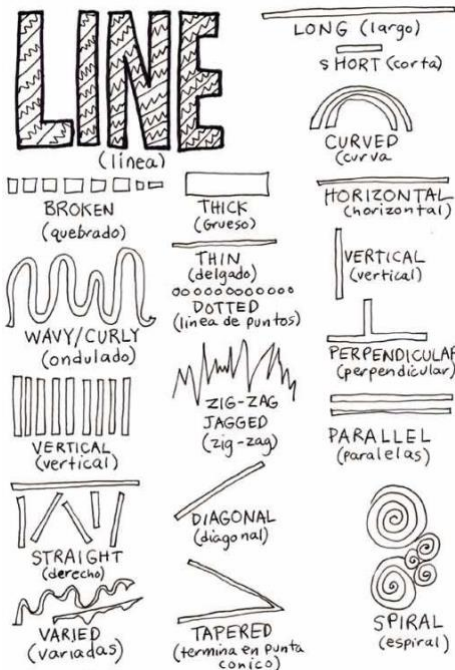 LINE
(línea)
BROKEN
(quebrado)
WAVY/CURLY
(ondulado)
VERTICAL
(vertical)
STRAIGHT
(derecho)
VARIED
(variadas)
THICK
(Grueso)
THIN
(delgado)
DOTTED
(linea de puntos)
ZIG-ZAG
JAGGED
(zig-zag)
DIAGONAL
(diagonal)
TAPERED
(termina en punta
conico)
LONG (largo)
SHORT (corta)
CURVED
(curva
HORIZONTAL
(horizontal)
VERTICAL
(vertical)
PERPENDICULAR
(perpendicular)
PARALLEL
(paralelas)
SPIRAL
(espiral)